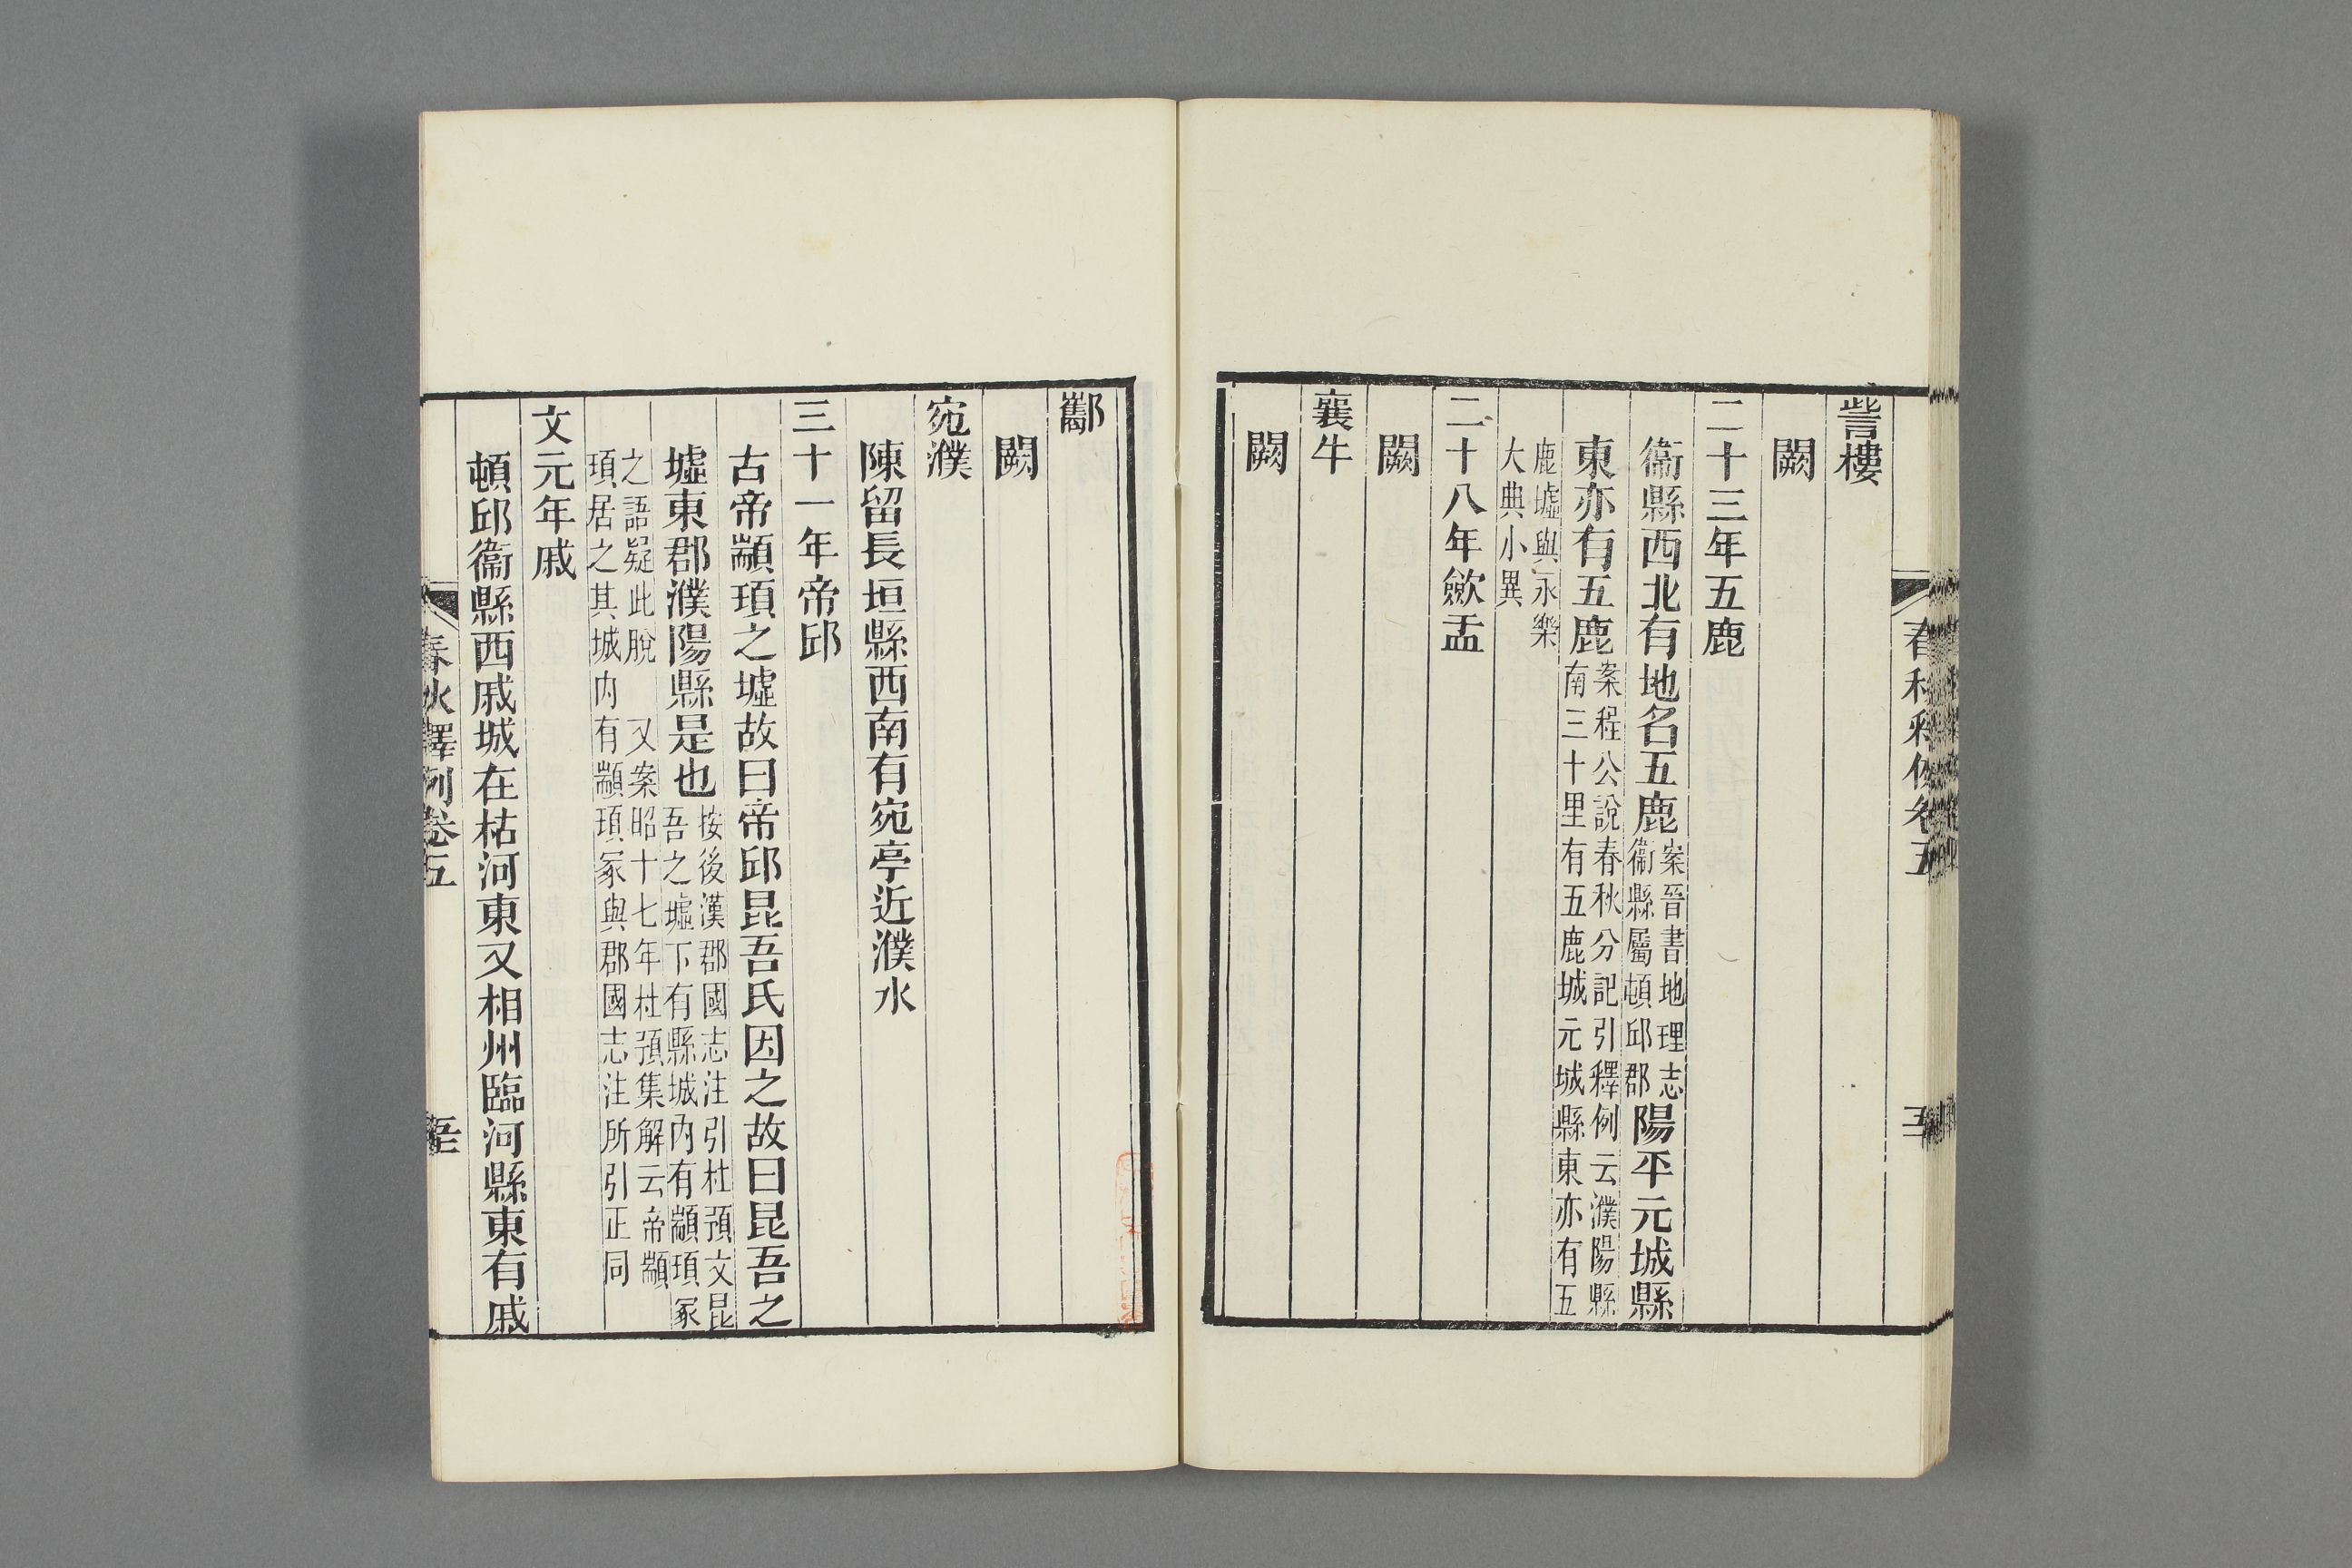 訾樓
闕
二十三年五鹿
衞縣西北有地名五鹿案晉書地理志衞縣屬頓邱郡陽平元城縣
東亦有五鹿案程公說春秋分記引釋例云濮陽縣南三十里有五鹿城元城縣東亦有五
鹿墟與永樂大典小異
二十八年歛盂
闕
襄牛
闕
酄
闕
宛濮
陳留長垣縣西南有宛亭近濮水
三十一年帝邱
古帝顓頊之墟故曰帝邱昆吾氏因之故曰昆吾之
墟東郡濮陽縣是也按後漢郡國志注引杜預文昆吾之墟下有縣城內有顓頊冢
之語疑此脫 又案昭十七年杜預集解云帝顓頊居之其城內有顓頊冢與郡國志注所引正同
文元年戚
頓邱衞縣西戚城在枯河東又相州臨河縣東有戚
春秋釋例卷五